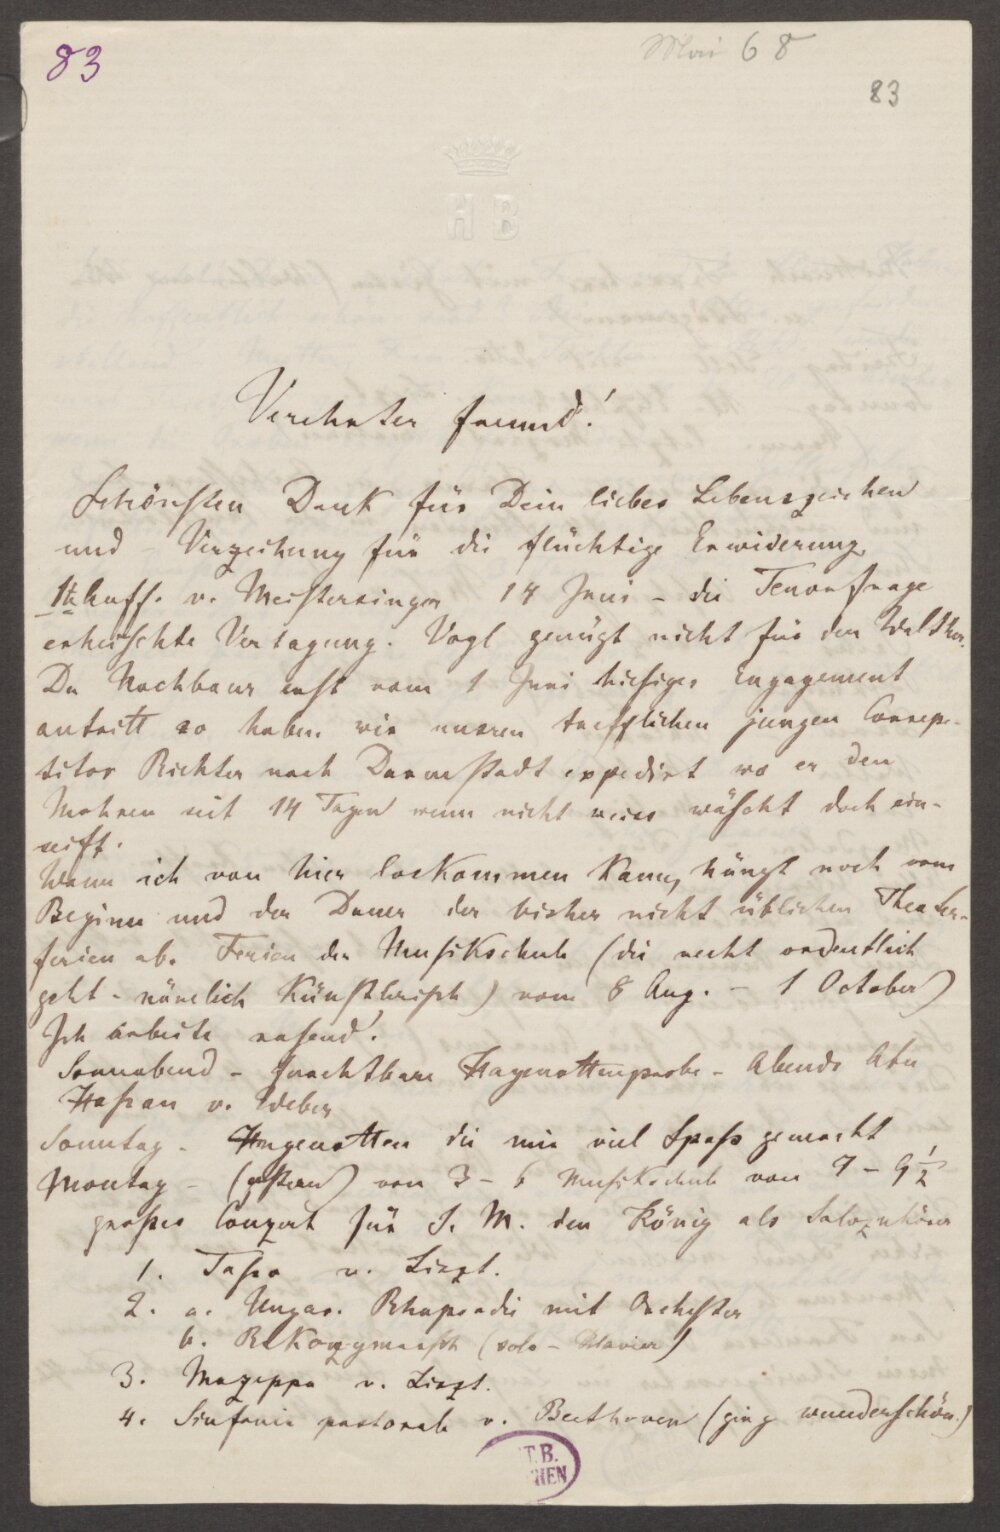 83
Mai 68
83
H B
Verehrter Freund!
Schönsten Dank für Dein liebes Lebenszeichen
und Verzeihung für die flüchtige Erwiderung.
1te Auff. v. Meistersinger 14 Juni – die Tenorfrage
erheischte Vertagung. Vogl genügt nicht für den Walther.
Da Nachbaur erst vom 1 Juni hiesiges Engagement
antritt so haben wir unsren trefflichen jungen Correpe-
titor Richter nach Darmstadt expedirt wo er den
Mohren seit 14 Tagen wenn nicht weiss wäscht doch ein-
seift.
Wann ich von hier loskommen kann, hängt noch vom
Beginn und der Dauer der bisher nicht üblichen Theater-
ferien ab. Ferien der Musikschule (die recht ordentlich
geht – nämlich künstlerisch) vom 8 Aug. – 1 October)
Ich arbeite rasend!
Sonnabend – furchtbare Hugenottenprobe – Abends Abu
Hassan v. Weber
Sonntag – Hugenotten die mir viel Spass gemacht
Montag – (gestern) von 3 – 6 Musikschule von 7 – 9½
grosses Conzert für S. M. den König als Solozuhörer
1. Tasso v. Liszt.
2. a. Ungar. Rhapsodie mit Orchester
b. Rakoczymarsch (solo – Klavier)
3. Mazeppa v. Liszt.
4. Sinfonie pastorale v. Beethoven (ging wunderschön.)
T.B.
HEN